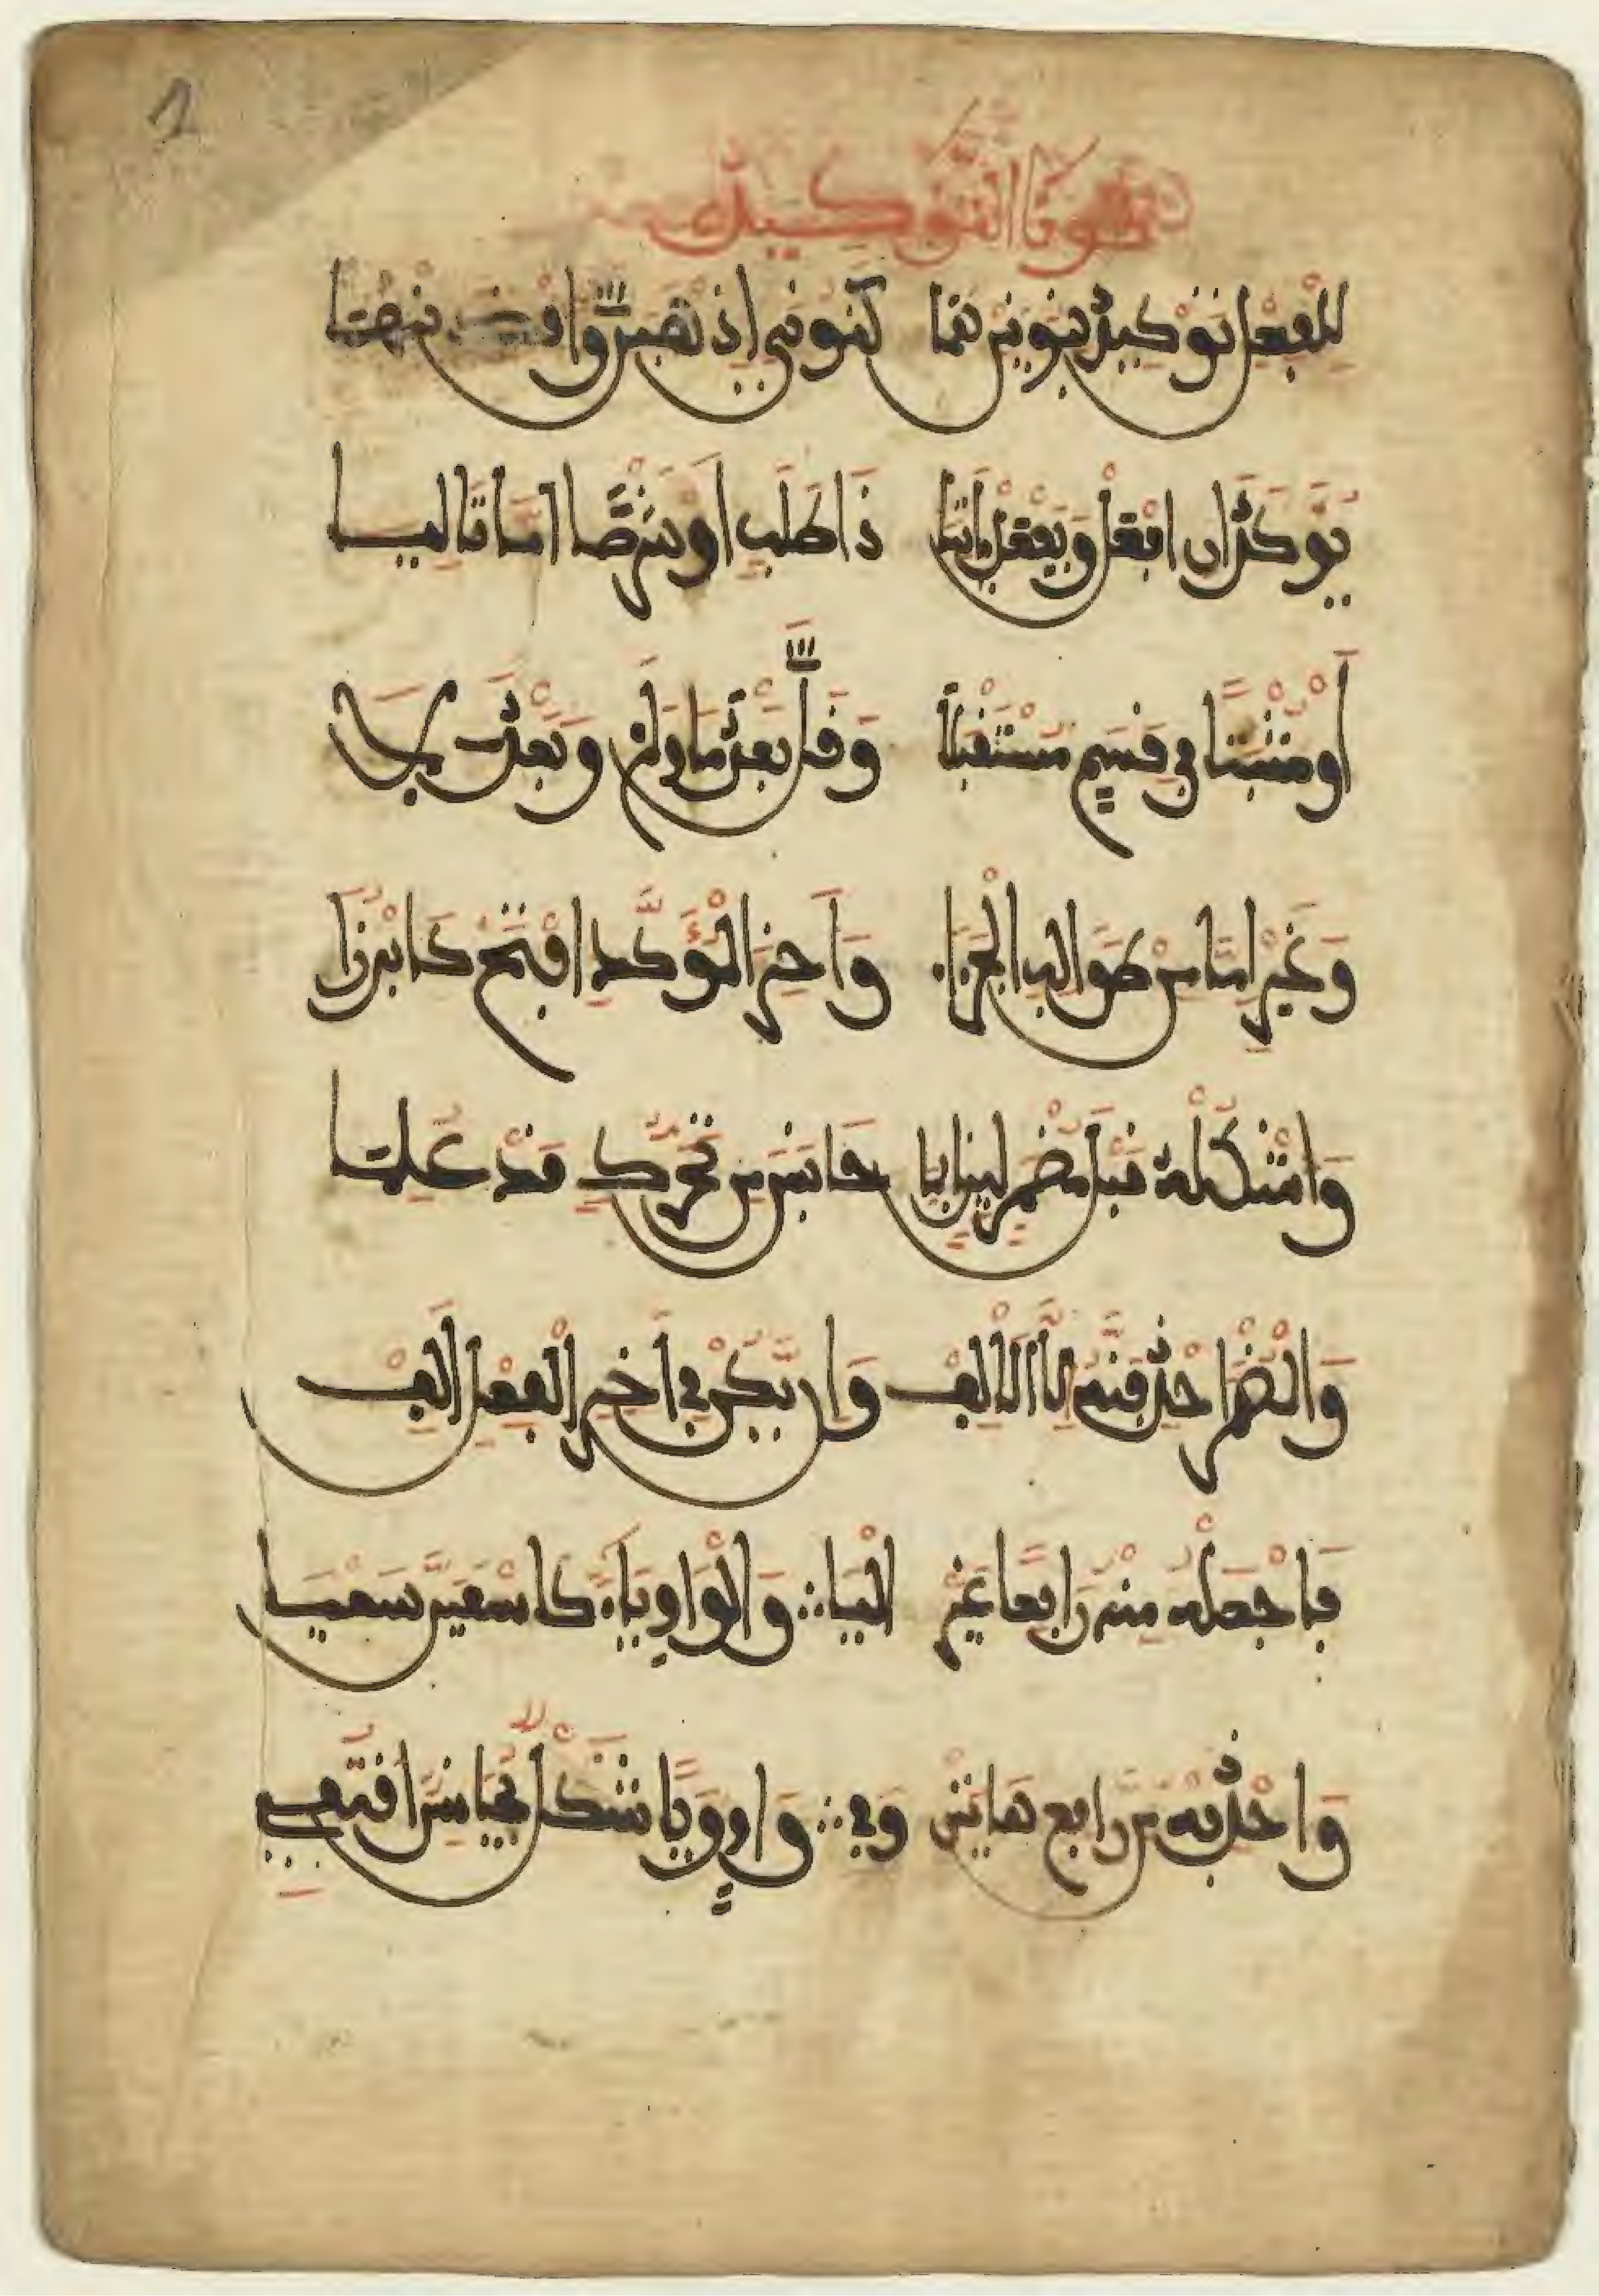 نونا التوكيد
للفعل توكيد بنونين هما كنوني اذهبن واقصدنهما
يوكدان افعل ويفعل اتيا ذا طلب او شرطا اما تاليا
أو مثبتا في قسم مستقبلا وقل بعد ما ولم وبعد لا
وغير اما من طوالب الجزا وآخر المؤكد افتح كابرزا
واشكله قبل مضمر لين بما جانس من تحرك قد علما
والمضمر احذفنه إلا الالف وان يكن في آخر الفعل ألف
فاجعله منه رافعا غير اليا والواو ياء كاسعين سعيا
واحذفه من رافع هاتين وفي واو ويا شكل مجانس اقتفي